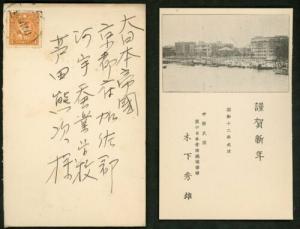 大日本帝國
京都府加佐郡
河守蚕業学校
芦田熊次様
謹賀新年
昭和十二年元旦
中華民國
木下秀雄